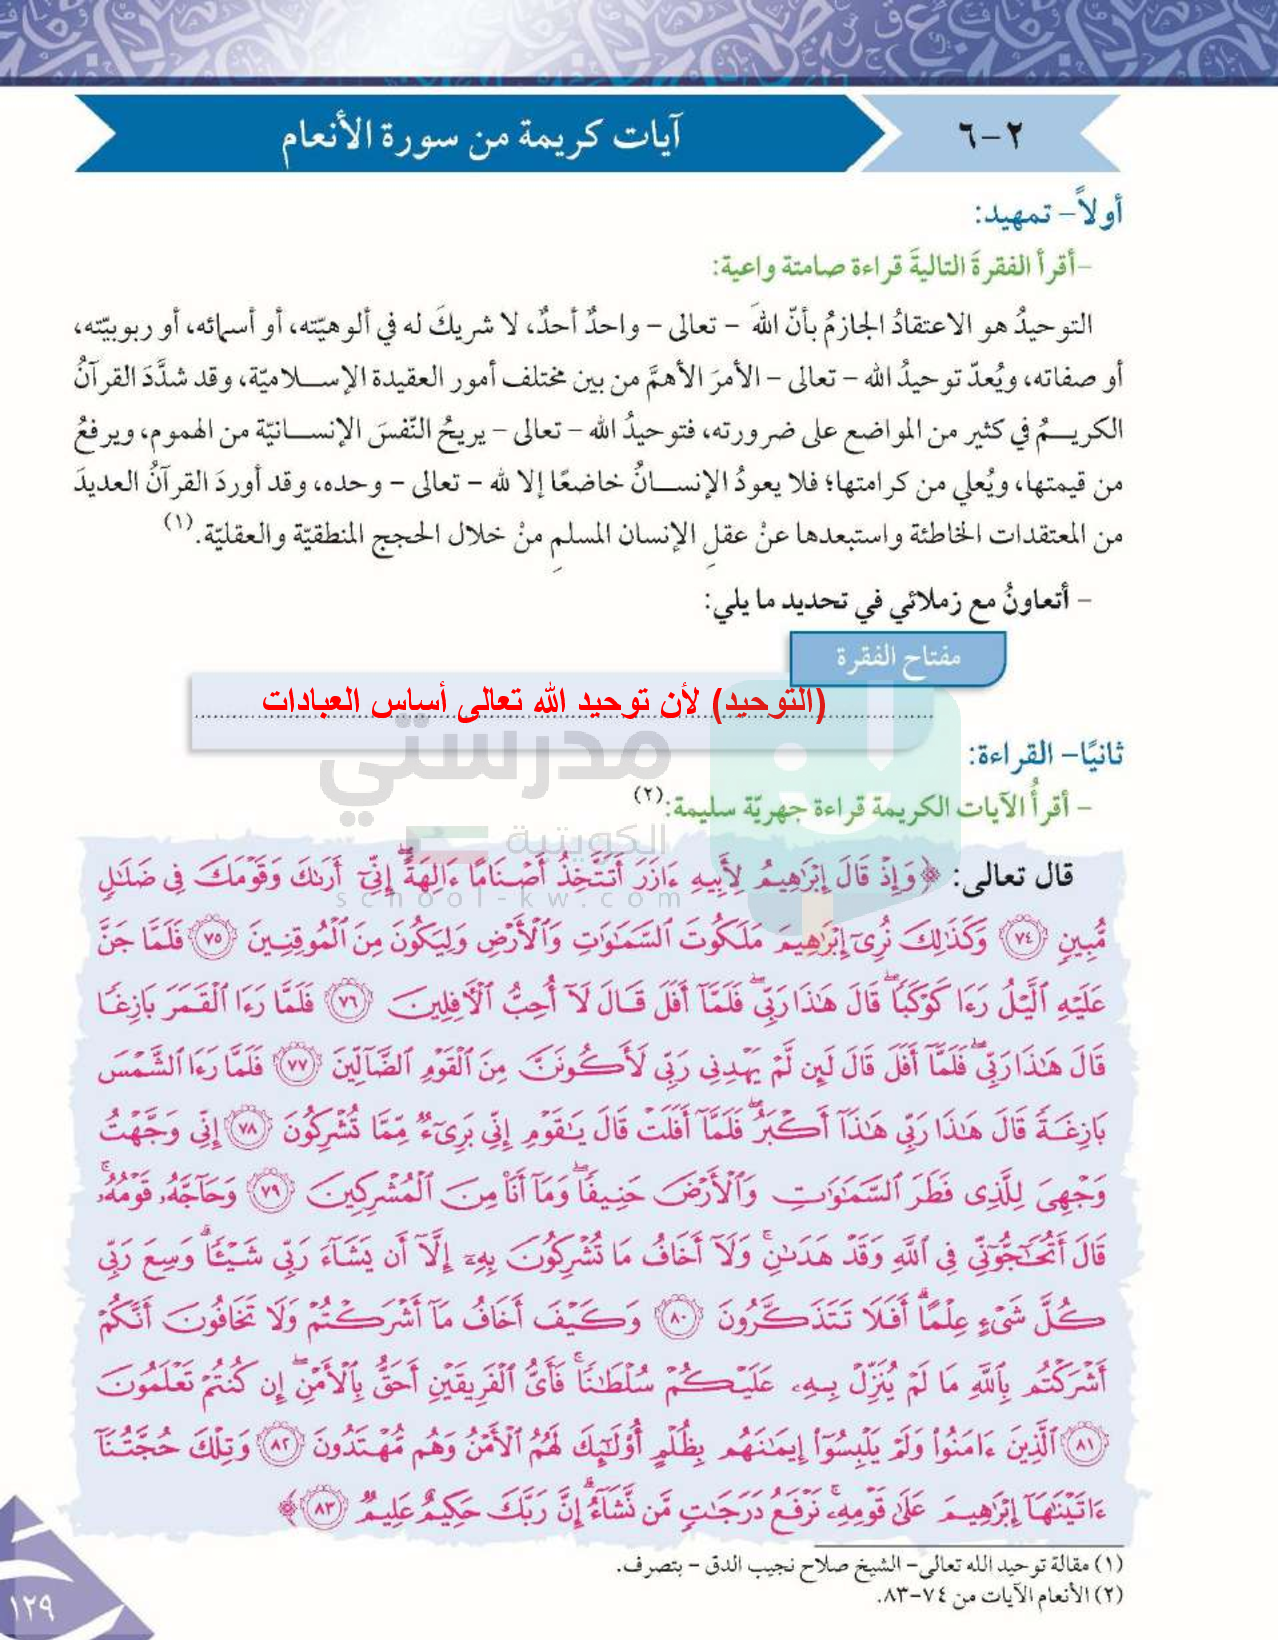 ٢-٦
آيات كريمة من سورة الأنعام
أولاً- تمهيد:
-أقرأ الفقرةَ التاليةَ قراءة صامتة واعية:
التوحيدُ هو الاعتقادُ الجازمُ بأنّ اللهَ - تعالى - واحدٌ أحدٌ، لا شريكَ له في ألوهيّته، أو أسمائه، أو ربوبيّته،
أو صفاته، ويُعدّ توحيدُ الله - تعالى - الأمرَ الأهمَّ من بين مختلف أمور العقيدة الإسلاميّة، وقد شدَّدَ القرآنُ
الكريمُ في كثير من المواضع على ضرورته، فتوحيدُ الله - تعالى - يريحُ النّفسَ الإنسانيّة من الهموم، ويرفعُ
من قيمتها، ويُعلي من كرامتها؛ فلا يعودُ الإنسانُ خاضعًا إلا لله - تعالى - وحده، وقد أوردَ القرآنُ العديدَ
من المعتقدات الخاطئة واستبعدها عنْ عقلِ الإنسان المسلمِ منْ خلال الحجج المنطقيّة والعقليّة.(١)
- أتعاونُ مع زملائي في تحديد ما يلي:
مفتاح الفقرة
(التوحيد) لأن توحيد الله تعالى أساس العبادات
مدرستي
الكويتية
school-kw.com
ثانيًا- القراءة:
- أقرأُ الآيات الكريمة قراءة جهريّة سليمة:(٢)
قال تعالى: ﴿وَإِذْ قَالَ إِبْرَٰهِيمُ لِأَبِيهِ ءَازَرَ أَتَتَّخِذُ أَصْنَامًا ءَالِهَةً ۖ إِنِّىٓ أَرَىٰكَ وَقَوْمَكَ فِى ضَلَٰلٍ
مُّبِينٍ ٧٤ وَكَذَٰلِكَ نُرِىٓ إِبْرَٰهِيمَ مَلَكُوتَ ٱلسَّمَٰوَٰتِ وَٱلْأَرْضِ وَلِيَكُونَ مِنَ ٱلْمُوقِنِينَ ٧٥ فَلَمَّا جَنَّ
عَلَيْهِ ٱلَّيْلُ رَءَا كَوْكَبًا ۖ قَالَ هَٰذَا رَبِّى ۖ فَلَمَّآ أَفَلَ قَالَ لَآ أُحِبُّ ٱلْأَفِلِينَ ٧٦ فَلَمَّا رَءَا ٱلْقَمَرَ بَازِغًا
قَالَ هَٰذَا رَبِّى ۖ فَلَمَّآ أَفَلَ قَالَ لَئِن لَّمْ يَهْدِنِى رَبِّى لَأَكُونَنَّ مِنَ ٱلْقَوْمِ ٱلضَّآلِّينَ ٧٧ فَلَمَّا رَءَا ٱلشَّمْسَ
بَازِغَةً قَالَ هَٰذَا رَبِّى هَٰذَآ أَكْبَرُ ۖ فَلَمَّآ أَفَلَتْ قَالَ يَٰقَوْمِ إِنِّى بَرِىٓءٌ مِّمَّا تُشْرِكُونَ ٧٨ إِنِّى وَجَّهْتُ
وَجْهِىَ لِلَّذِى فَطَرَ ٱلسَّمَٰوَٰتِ وَٱلْأَرْضَ حَنِيفًا ۖ وَمَآ أَنَا۠ مِنَ ٱلْمُشْرِكِينَ ٧٩ وَحَآجَّهُۥ قَوْمُهُۥ ۚ
قَالَ أَتُحَٰٓجُّوٓنِّى فِى ٱللَّهِ وَقَدْ هَدَىٰنِ ۚ وَلَآ أَخَافُ مَا تُشْرِكُونَ بِهِۦٓ إِلَّآ أَن يَشَآءَ رَبِّى شَيْـًٔا ۗ وَسِعَ رَبِّى
كُلَّ شَىْءٍ عِلْمًا ۗ أَفَلَا تَتَذَكَّرُونَ ٨٠ وَكَيْفَ أَخَافُ مَآ أَشْرَكْتُمْ وَلَا تَخَافُونَ أَنَّكُمْ
أَشْرَكْتُم بِٱللَّهِ مَا لَمْ يُنَزِّلْ بِهِۦ عَلَيْكُمْ سُلْطَٰنًا ۚ فَأَىُّ ٱلْفَرِيقَيْنِ أَحَقُّ بِٱلْأَمْنِ ۖ إِن كُنتُمْ تَعْلَمُونَ
٨١ ٱلَّذِينَ ءَامَنُوا۟ وَلَمْ يَلْبِسُوٓا۟ إِيمَٰنَهُم بِظُلْمٍ أُو۟لَٰٓئِكَ لَهُمُ ٱلْأَمْنُ وَهُم مُّهْتَدُونَ ٨٢ وَتِلْكَ حُجَّتُنَآ
ءَاتَيْنَٰهَآ إِبْرَٰهِيمَ عَلَىٰ قَوْمِهِۦ ۚ نَرْفَعُ دَرَجَٰتٍ مَّن نَّشَآءُ ۗ إِنَّ رَبَّكَ حَكِيمٌ عَلِيمٌ ٨٣﴾
(١) مقالة توحيد الله تعالى- الشيخ صلاح نجيب الدق - بتصرف.
(٢) الأنعام الآيات من ٧٤-٨٣.
١٢٩